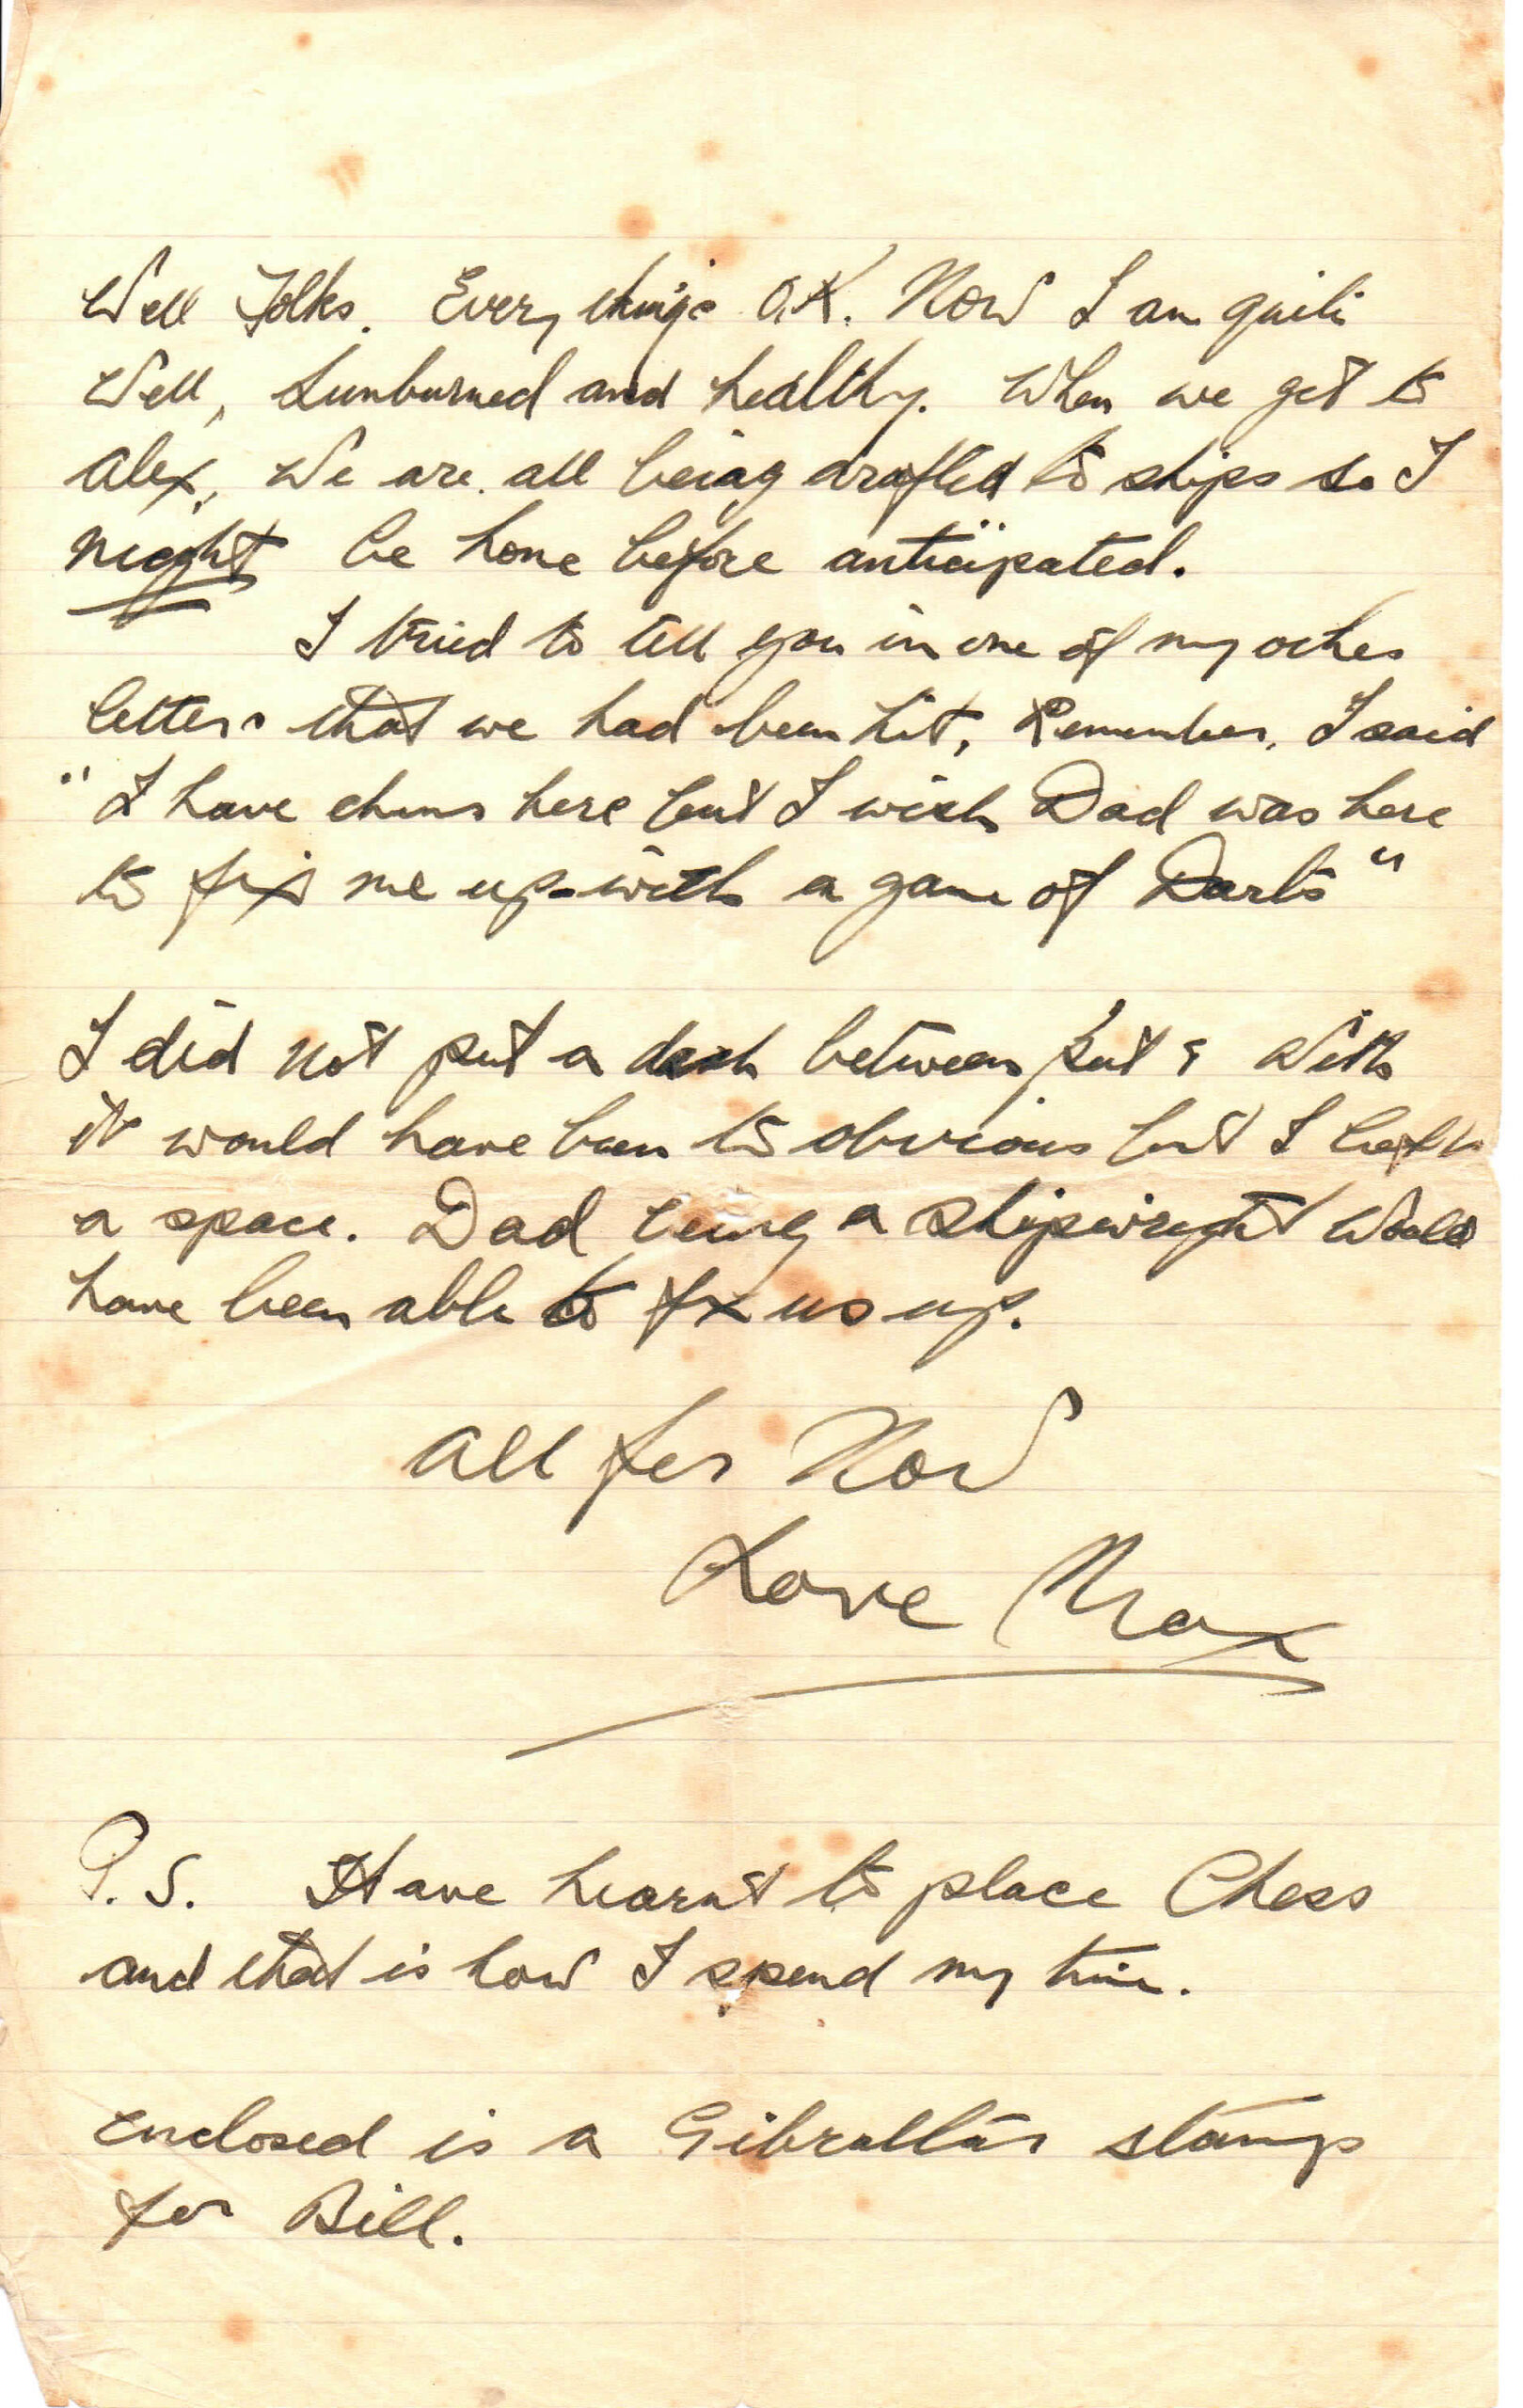 Well Folks. Everythings O.K. Now I am quite
Well, Sunburned and healthy. When we get to
Alex, We are all being drafted to ships so I
might be home before anticipated.
I tried to tell you in one of my other
letters that we had been hit, Remember, I said
"I have chums here but I wish Dad was here
to fix me up-with a game of Darts"
I did not put a dash between but & With
it would have been to obvious but I left
a space. Dad being a shipwright Would
have been able to fix us up.
All for Now
Love Max
P.S. Have learnt to place Chess
and that is how I spend my time.
Enclosed is a Gibraltar stamp
for Bill.